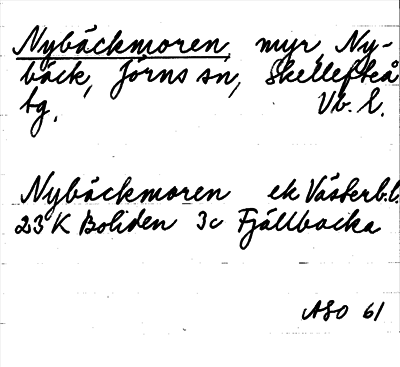 Nybäckmoren, myr, Ny-
bäck, Jörns sn, Skellefteå
tg. Vb. l.
Nybäckmoren ek Västerb.l.
23 K Boliden 3c Fjällbacka
ASO 61